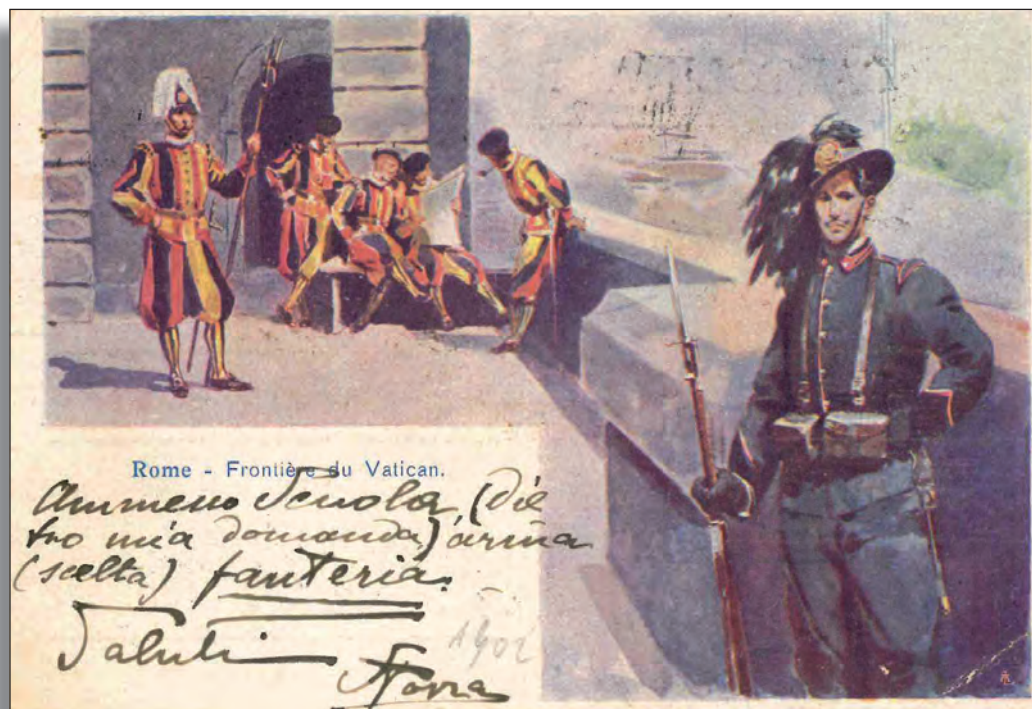 Rome - Frontière du Vatican.
Ammesso Scuola, (die
tro mia domanda) arma
(scelta) fanteria.
Saluti
1902